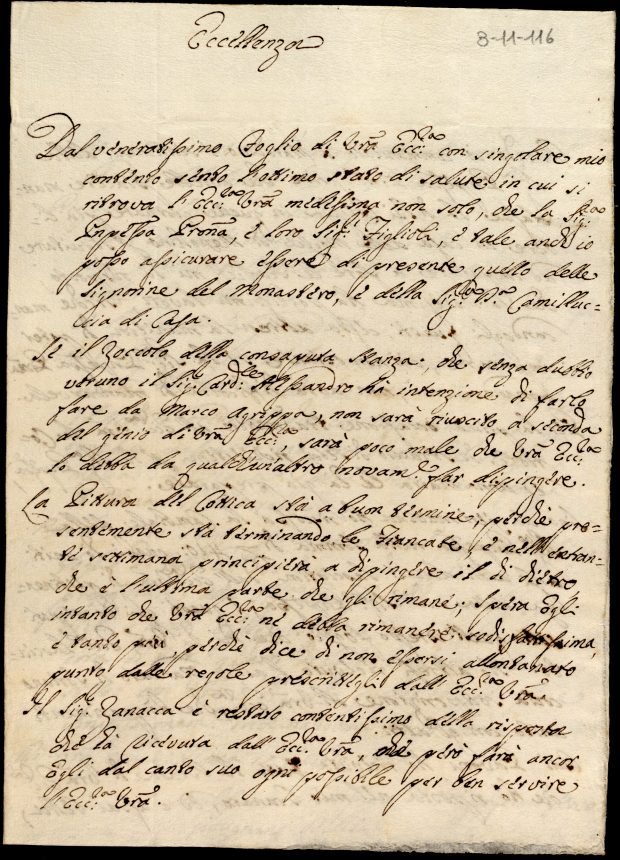 Eccellenza
3-11-116
Dal veneratissimo Foglio di Vrã Ecc:za con singolare mio
contento sento l'ottimo stato di salute in cui si
ritrova l'Ecc:za Vrã medesima non solo, che la Sig:ra
Pnpessa Pronã, e loro Sig:i Figlioli, e tale anch'io
posso assicurare essere di presente quello delle
Signorine del Monastero, e della Sig:ra D.a Camilluc=
cia di Casa.
Se il Zoccolo della consaputa Stanza, che senza dubbio
veruno il Sig: Card:le Alessandro hà intenzione di farlo
fare da Marco Agrippa, non sarà riuscito a seconda
del genio di Vrã Ecc:za, sarà poco male che Vrã Ecc:za
lo debba da qualchun'altro novam:te far dipingere.
La Pittura del Cottica stà a buon termine, perche pre=
sentemente stà terminando le Fiancate, e nell'entran=
te settimana principierà a dipingere il di dietro
che è l'ultima parte che gli rimane; spera Egli
intanto che Vrã Ecc:za ne debba rimanere sodisfattissima,
e tanto più, perche dice di non essersi allontanato
punto dalle regole prescrittegli dall'Ecc:za Vrã.
Il Sig: Zanacca è restato contentissimo della risposta
che hà ricevuta dall'Ecc:za Vrã, che però farà ancor
Egli dal canto suo ogni possibile per ben servire
l'Ecc:za Vrã.